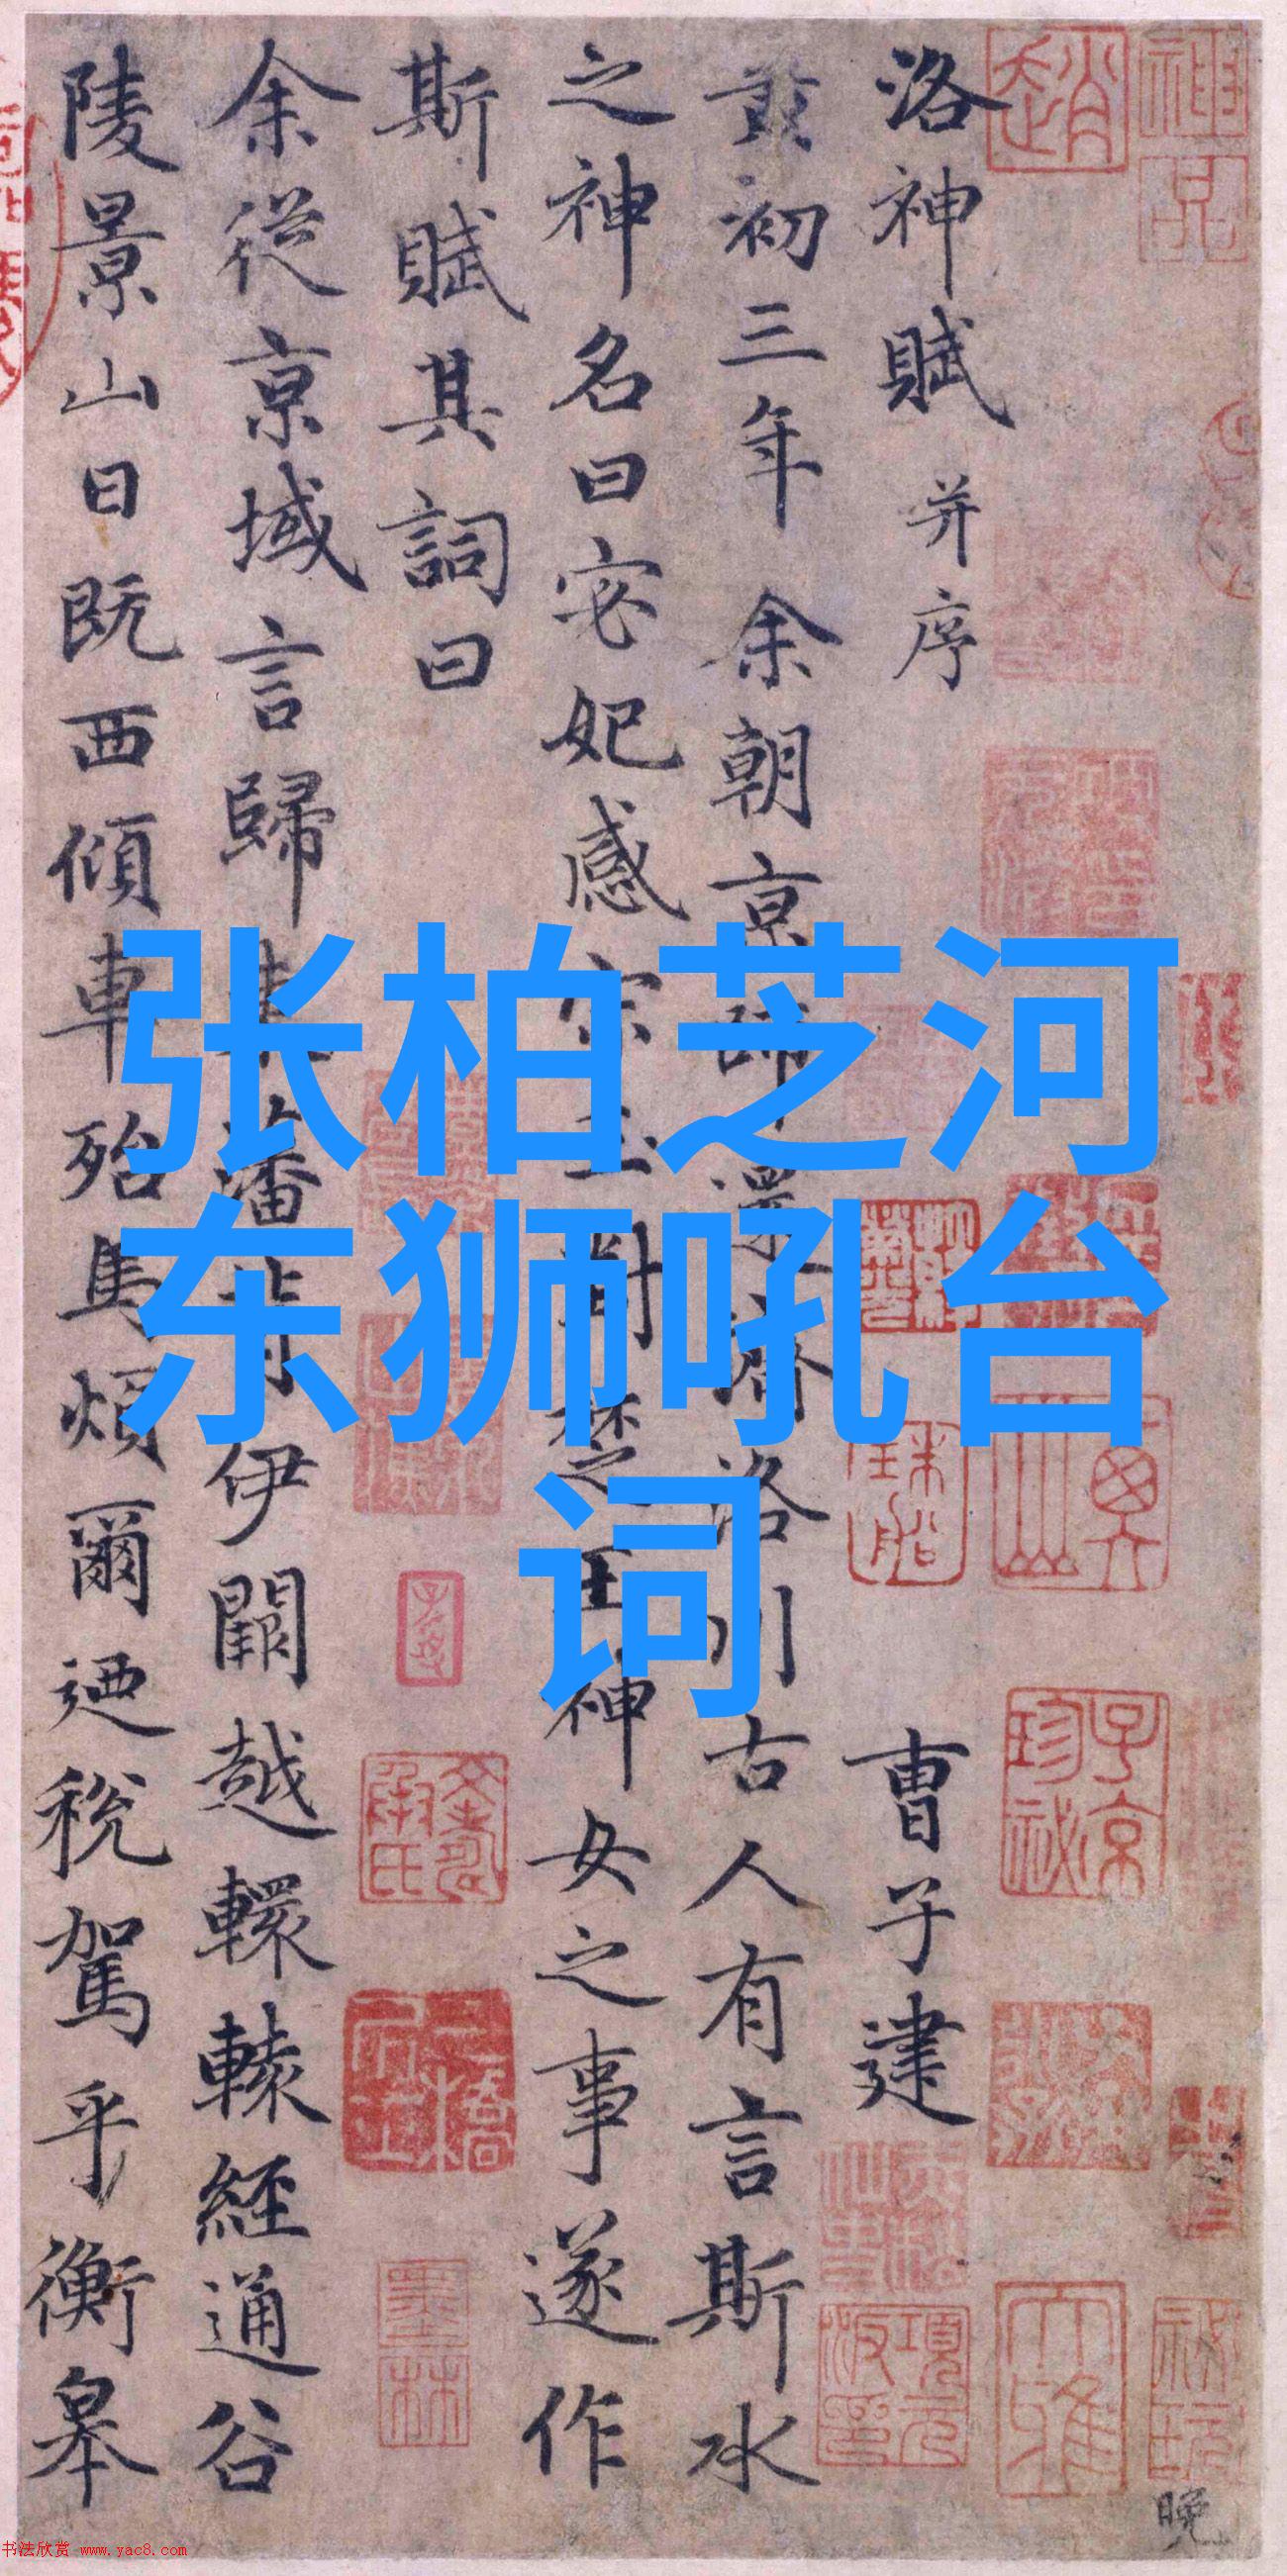 洛神賦 并序
曹子建
黄初三年余朝京師還濟洛川古人有言斯水
之神名曰宓妃感宋玉對楚王神女之事遂作
斯賦其詞曰
余從京域言歸東藩背伊闕越轘轅經通谷
陵景山日既西傾車殆馬煩爾迺稅駕乎衡皋
张柏芝河
东狮吼台
词
趙
子京
珍祕
墨林
大雅
晚
书法欣赏 www.yac8.com